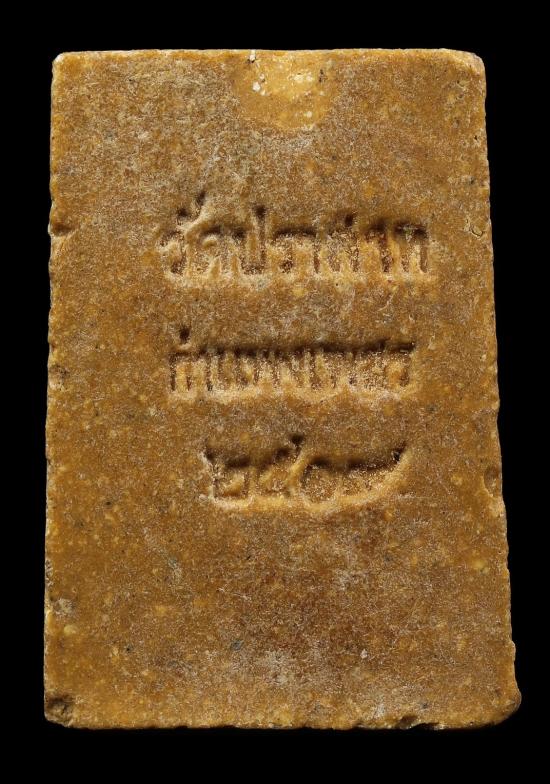 วัดปราสาท
กำแพงเพชร
๒๕๐๙